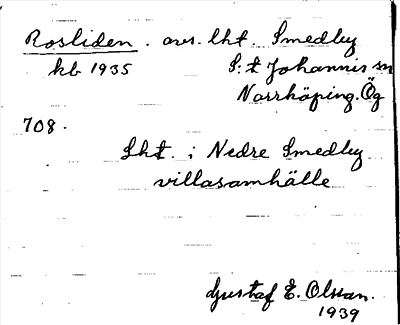 Rosliden. avs. lht. Smedby
kb 1935 S:t Johannis sn
Norrköping. Ög
708.
Lht. i Nedre Smedby
villasamhälle
Gustaf E. Olsson.
1939